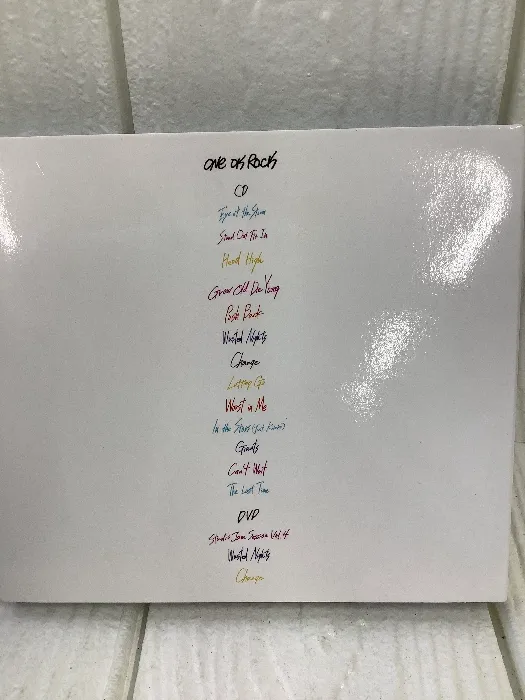 ONE OK ROCK
CD
Eye of the Storm
Stand Out Fit In
Head High
Grow Old Die Young
Push Back
Wasted Nights
Change
Letting Go
Worst in Me
In the Stars (feat. Kiiara)
Giants
Can't Wait
The Last Time
DVD
Studio Jam Session Vol.4
Wasted Nights
Change